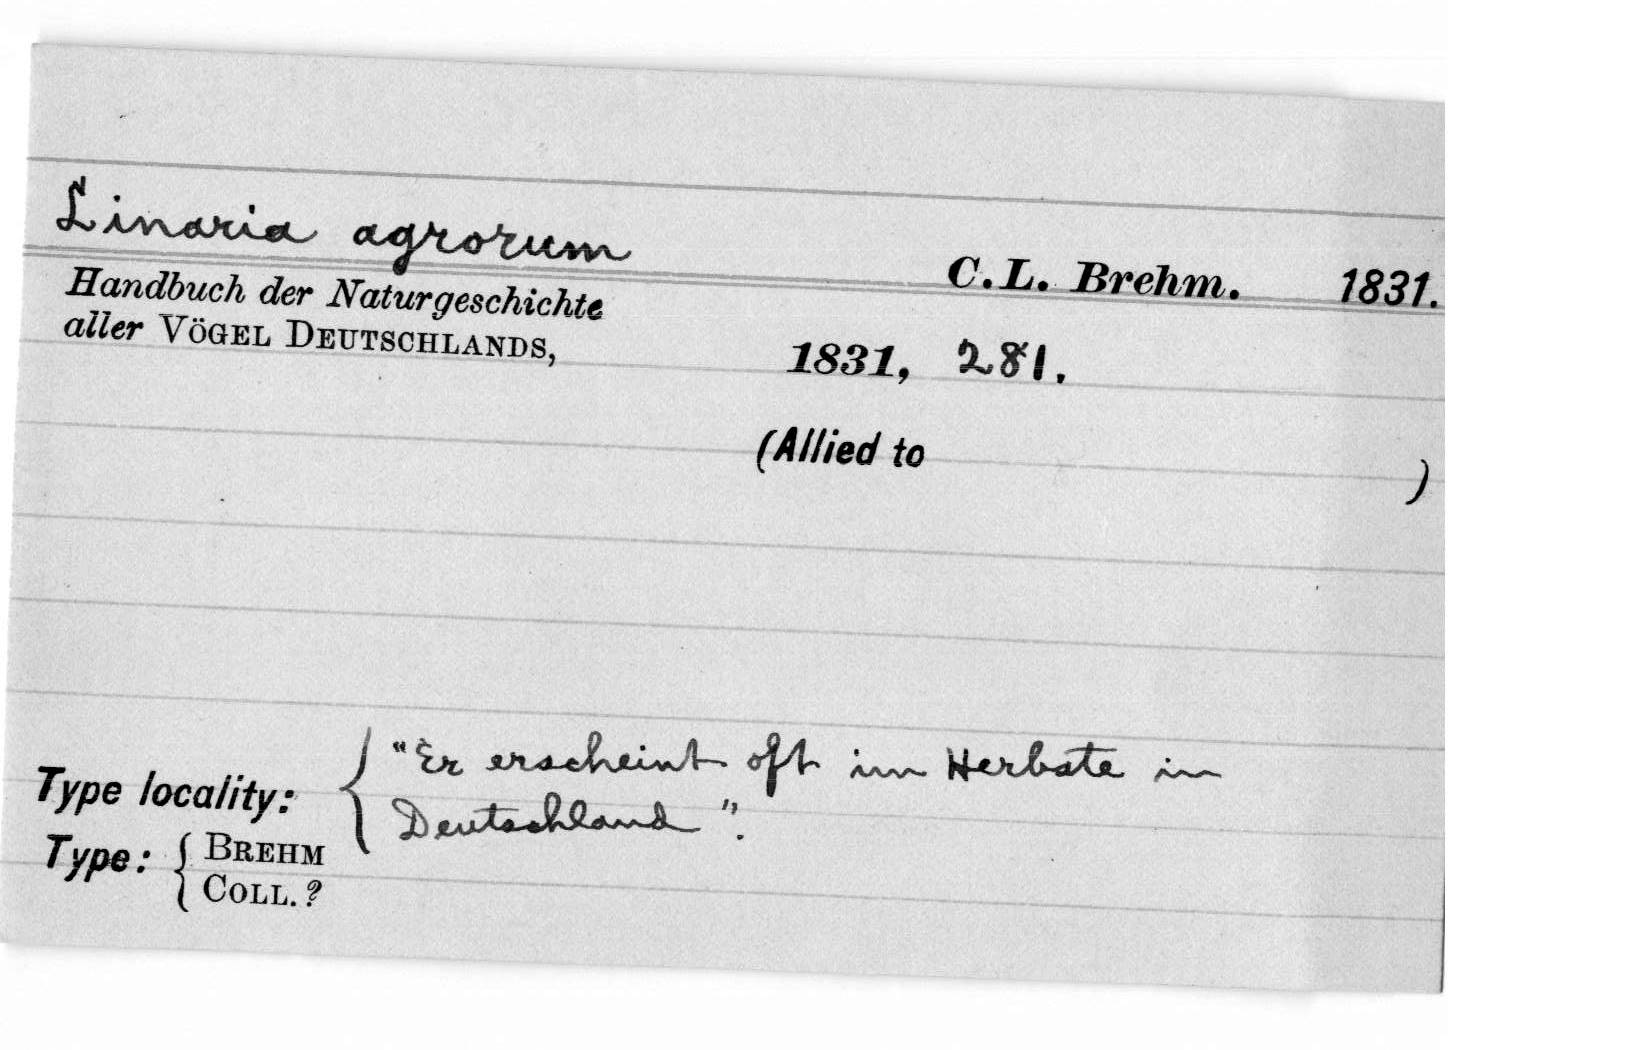 Linaria agrorum
C. L. Brehm. 1831.
Handbuch der Naturgeschichte
aller VÖGEL DEUTSCHLANDS,
1831, 281.
(Allied to )
Type locality: { "Er erscheint oft im Herbste in
Deutschland".
Type: { BREHM
COLL. ?